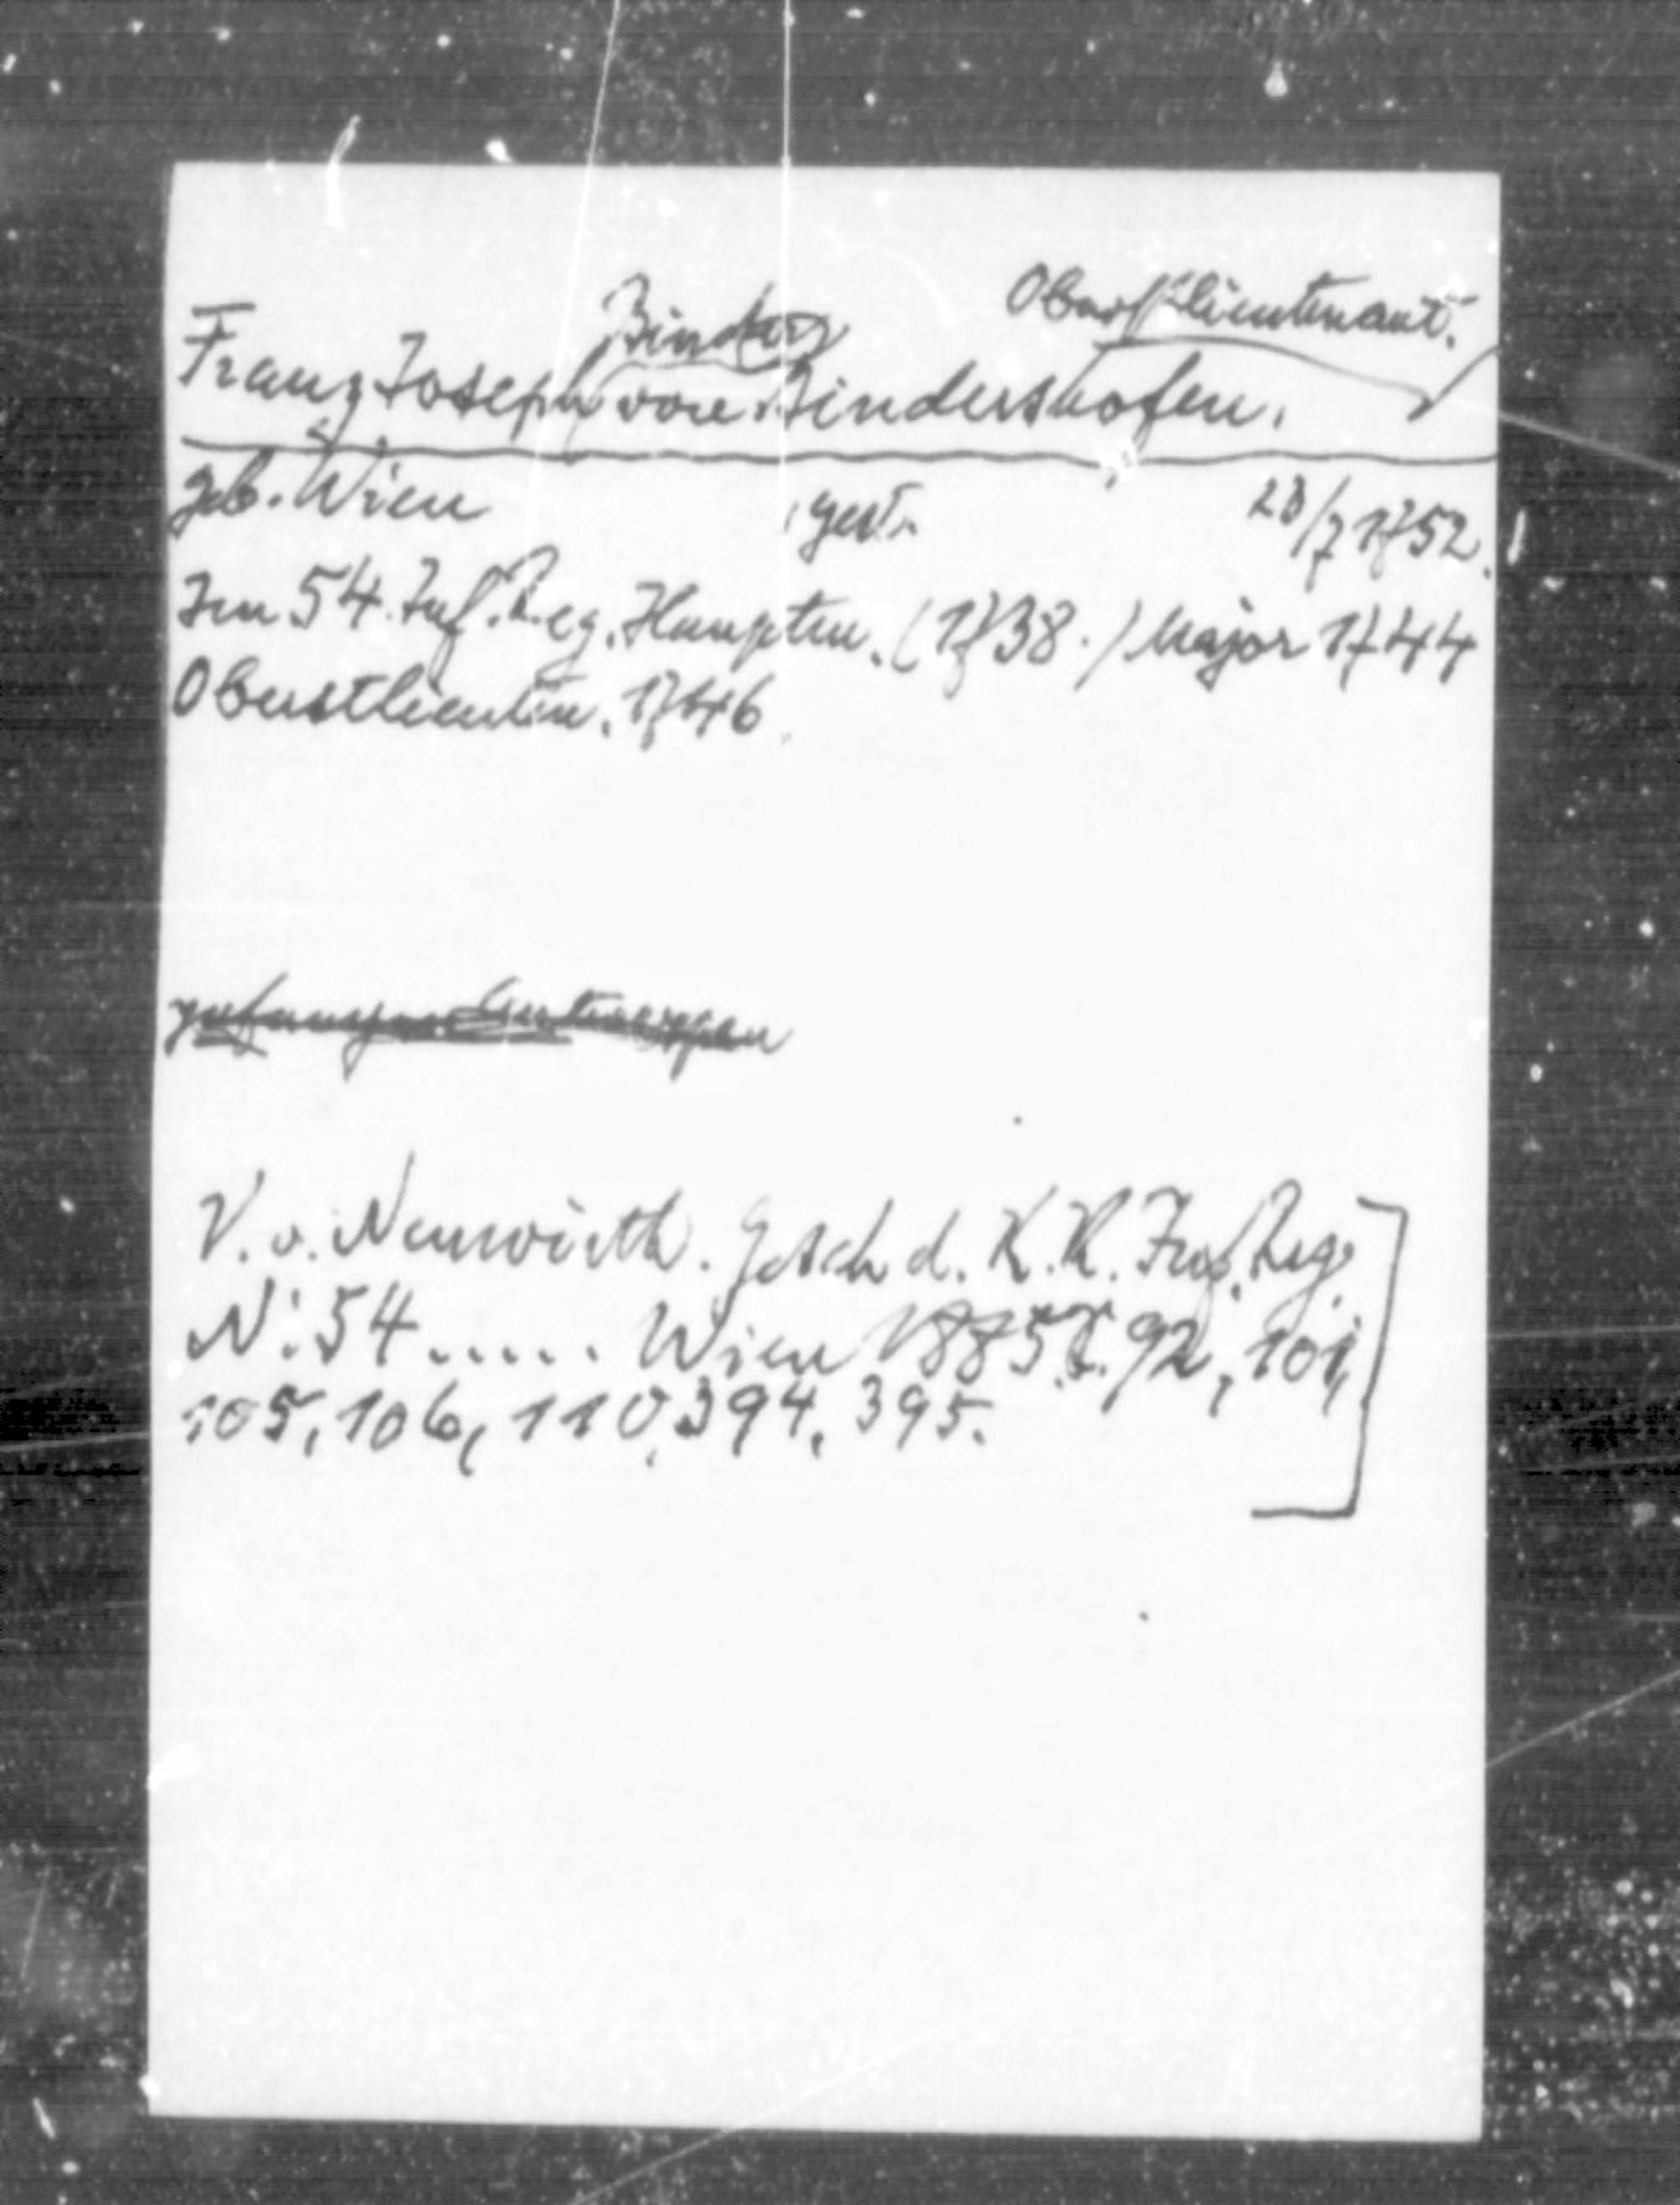 Binder Oberstlieutenant.
Franz Joseph von Bindershofen.
geb. Wien , gest. 28/7 1752.
Im 54. Inf. Reg. Hauptm. (1738.) Major 1744
Oberstlieutn. 1746.
gefangen Antwerpen
V. v. Neuwirth. Gesch d. K. K. Inf. Reg.
N: 54 ..... Wien 1885 S. 92, 101,
105, 106, 110, 394, 395.